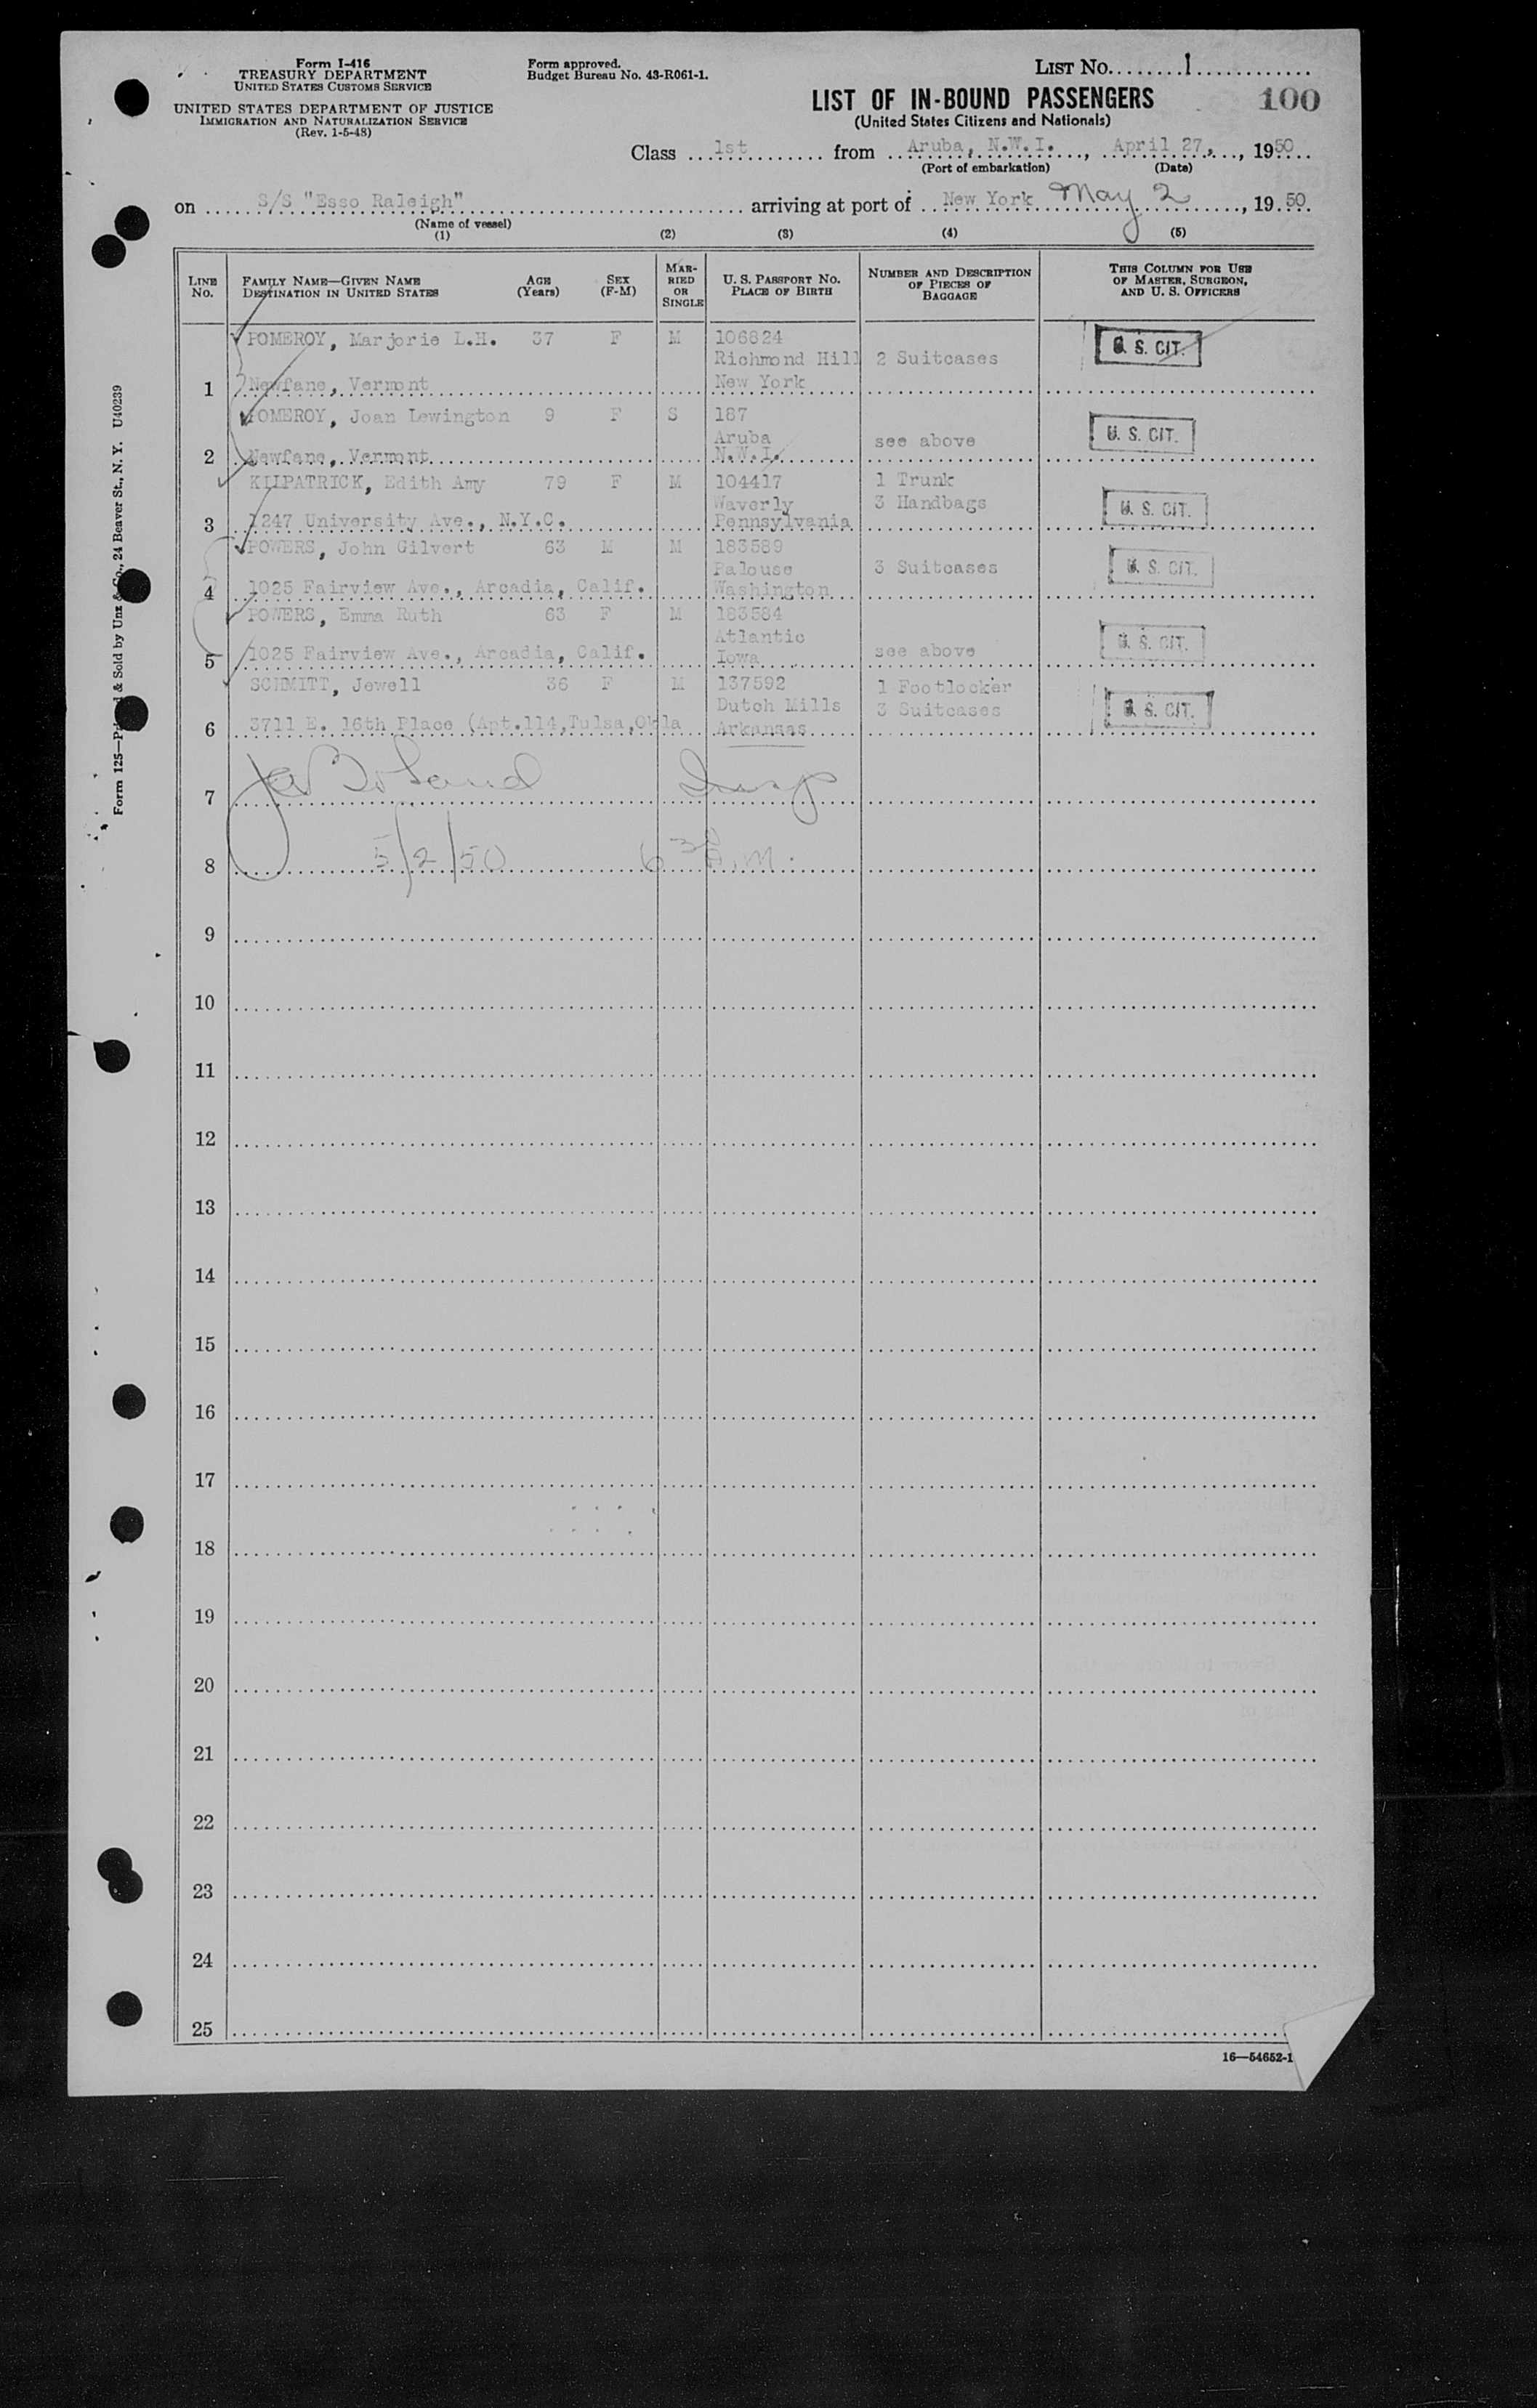 Form I-416
TREASURY DEPARTMENT
UNITED STATES CUSTOMS SERVICE
UNITED STATES DEPARTMENT OF JUSTICE
IMMIGRATION AND NATURALIZATION SERVICE
(Rev. 1-5-48)
Form approved.
Budget Bureau No. 43-R061-1.
LIST No. 1
100
LIST OF IN-BOUND PASSENGERS
(United States Citizens and Nationals)
Class 1st from Aruba, N.W.I., April 27, 1950
(Port of embarkation) (Date)
on S/S "Esso Raleigh" arriving at port of New York May 2, 1950
(Name of vessel)
(1) (2) (3) (4) (5)
LINE No.
FAMILY NAME—GIVEN NAME
DESTINATION IN UNITED STATES
AGE (Years)
SEX (F-M)
MARRIED OR SINGLE
U. S. PASSPORT NO.
PLACE OF BIRTH
NUMBER AND DESCRIPTION OF PIECES OF BAGGAGE
THIS COLUMN FOR USE OF MASTER, SURGEON, AND U. S. OFFICERS
POMEROY, Marjorie L.H. 37 F M 106824
Richmond Hill 2 Suitcases U. S. CIT.
1 Newfane, Vermont New York
POMEROY, Joan Lewington 9 F S 187
Aruba see above U. S. CIT.
2 Newfane, Vermont N.W.I.
KILPATRICK, Edith Amy 79 F M 104417 1 Trunk
Waverly 3 Handbags U. S. CIT.
3 1247 University Ave., N.Y.C. Pennsylvania
POWERS, John Gilvert 63 M M 183589
Palouse 3 Suitcases U. S. CIT.
4 1025 Fairview Ave., Arcadia, Calif. Washington
POWERS, Emma Ruth 63 F M 183584
Atlantic U. S. CIT.
5 1025 Fairview Ave., Arcadia, Calif. Iowa see above
SCHMITT, Jewell 36 F M 137592 1 Footlocker
Dutch Mills 3 Suitcases U. S. CIT.
6 3711 E. 16th Place (Apt.114,Tulsa,Okla Arkansas
7 Boland Insp
8 5/2/50 6 30 P.M.
9
10
11
12
13
14
15
16
17
18
19
20
21
22
23
24
25
16—54652-1
Form 125— & Sold by Unz & Co., 24 Beaver St., N. Y. U40239